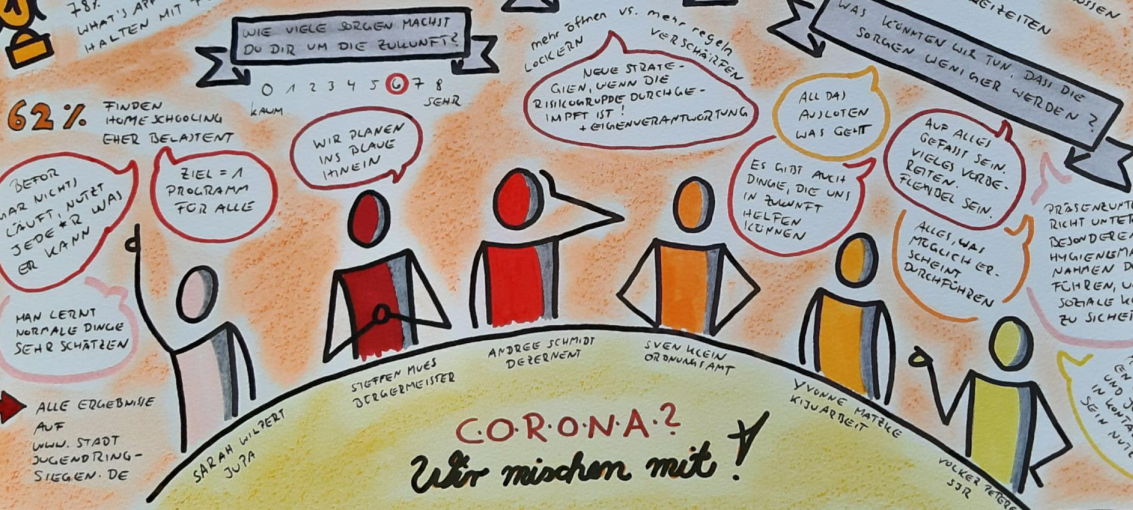 78%
WHAT'S APP
HALTEN MIT
WIE VIELE SORGEN MACHST
DU DIR UM DIE ZUKUNFT?
0 1 2 3 4 5 6 7 8
KAUM
SEHR
mehr öffnen vs. mehr regeln
LOCKERN
VERSCHÄRFEN
NEUE STRATE-
GIEN, WENN DIE
RISIKOGRUPPE DURCHGE-
IMPFT IST!
+ EIGENVERANTWORTUNG
WAS KÖNNTEN WIR TUN, DASS DIE
SORGEN WENIGER WERDEN?
62%
FINDEN
HOMESCHOOLING
EHER BELASTENT
BEFOR
GAR NICHTS
LÄUFT, NUTZT
JEDE*R WAS
ER KANN
ZIEL = 1
PROGRAMM
FÜR ALLE
WIR PLANEN
INS BLAUE
HINEIN
ALL DAS
AUSLOTEN
WAS GEHT
ES GIBT AUCH
DINGE, DIE UNS
IN ZUKUNFT
HELFEN
KÖNNEN
AUF ALLES
GEFASST SEIN.
VIELES VORBE-
REITEN.
FLEXIBEL SEIN.
ALLES, WAS
MÖGLICH ER-
SCHEINT
DURCHFÜHREN
PRÄSENZUNTER
RICHT UNTER
BESONDEREN
HYGIENEMA
NAHMEN D
FÜHREN, U
SOZIALE K
ZU SICHE
MAN LERNT
NORMALE DINGE
SEHR SCHÄTZEN
ALLE ERGEBNISSE
AUF
WWW.STADT
JUGENDRING-
SIEGEN.DE
SARAH WILPERT
JUPA
STEFFEN MUES
BÜRGERMEISTER
ANDREE SCHMIDT
DEZERNENT
SVEN KLEIN
ORDNUNGSAMT
YVONNE MATZKE
KIJUARBEIT
VOLKER PETERS
SJR
UND J
IN KONTA
SEIN NUT
C.O.R.O.N.A.?
Wir mischen mit!